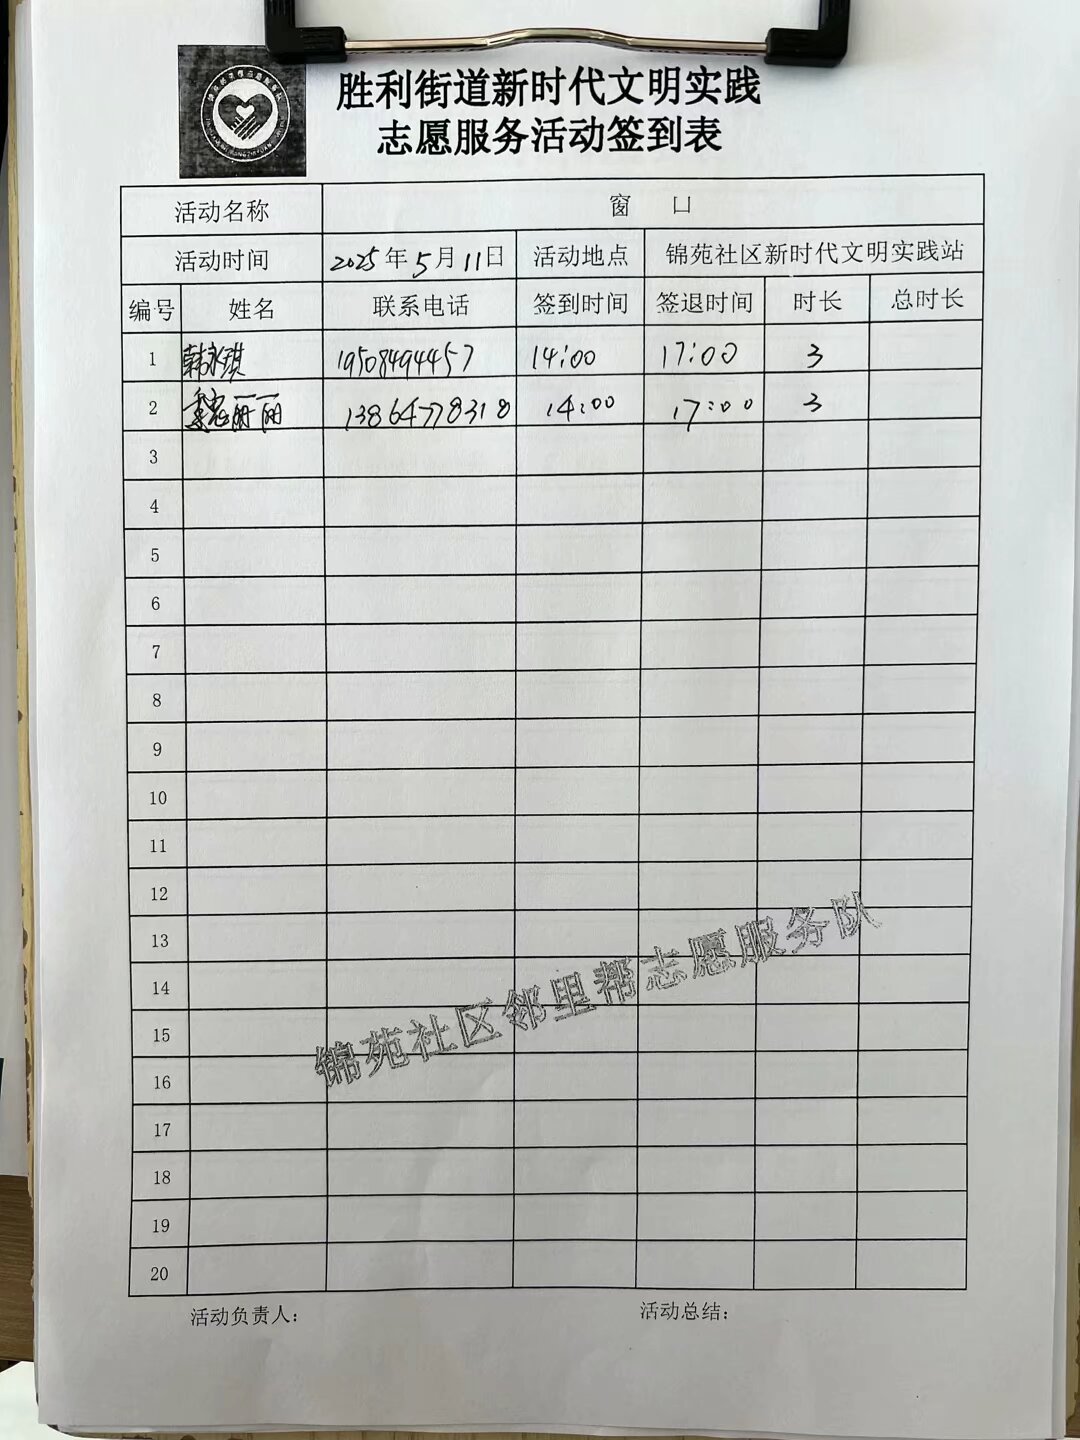 胜利街道新时代文明实践
志愿服务活动签到表
活动名称 窗 口
活动时间 2025年5月11日 活动地点 锦苑社区新时代文明实践站
编号 姓名 联系电话 签到时间 签退时间 时长 总时长
1 韩永琪 19508494457 14:00 17:00 3
2 魏丽丽 13864778318 14:00 17:00 3
3
4
5
6
7
8
9
10
11
12
13
14
15
16
17
18
19
20
锦苑社区邻里帮志愿服务队
活动负责人: 活动总结: